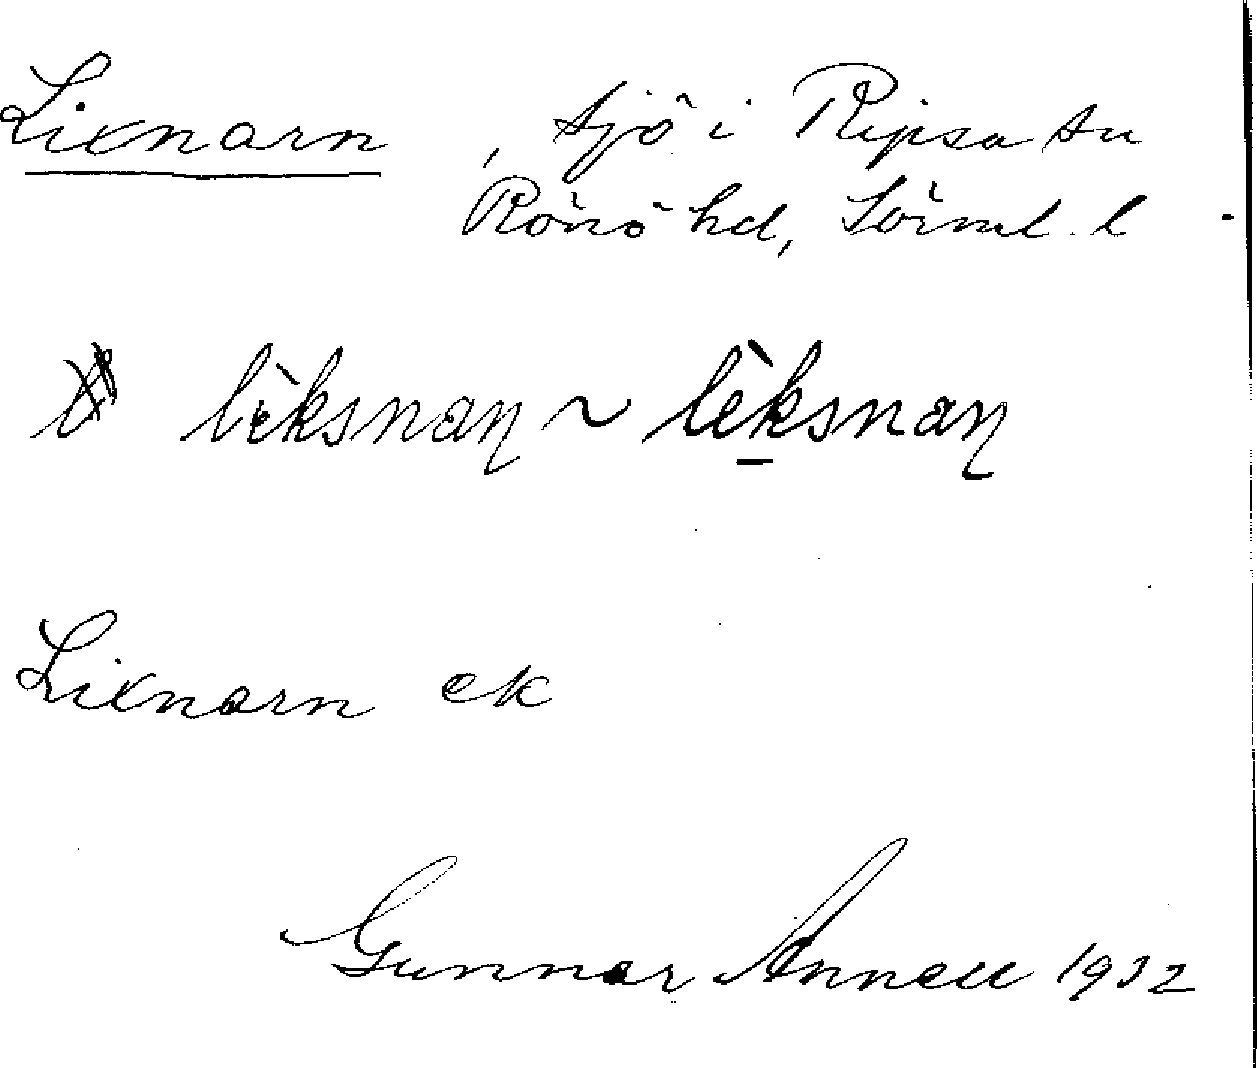 Lixnarn, sjö i Ripsa sn
Rönö hd, Sörml. l
lèksnaη ~ lèksnaη
Lixnarn ek
Gunnar Annell 1932